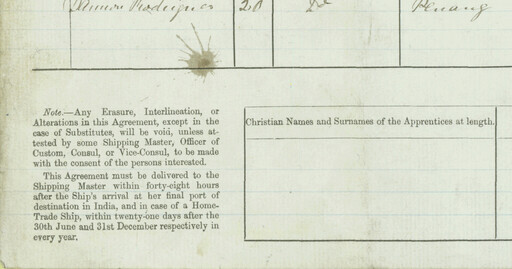 Ramon Rodrigues 20 Do Penang
Note.—Any Erasure, Interlineation, or
Alterations in this Agreement, except in the
case of Substitutes, will be void, unless at-
tested by some Shipping Master, Officer of
Custom, Consul, or Vice-Consul, to be made
with the consent of the persons interested.
This Agreement must be delivered to the
Shipping Master within forty-eight hours
after the Ship's arrival at her final port of
destination in India, and in case of a Home-
Trade Ship, within twenty-one days after the
30th June and 31st December respectively in
every year.
Christian Names and Surnames of the Apprentices at length.